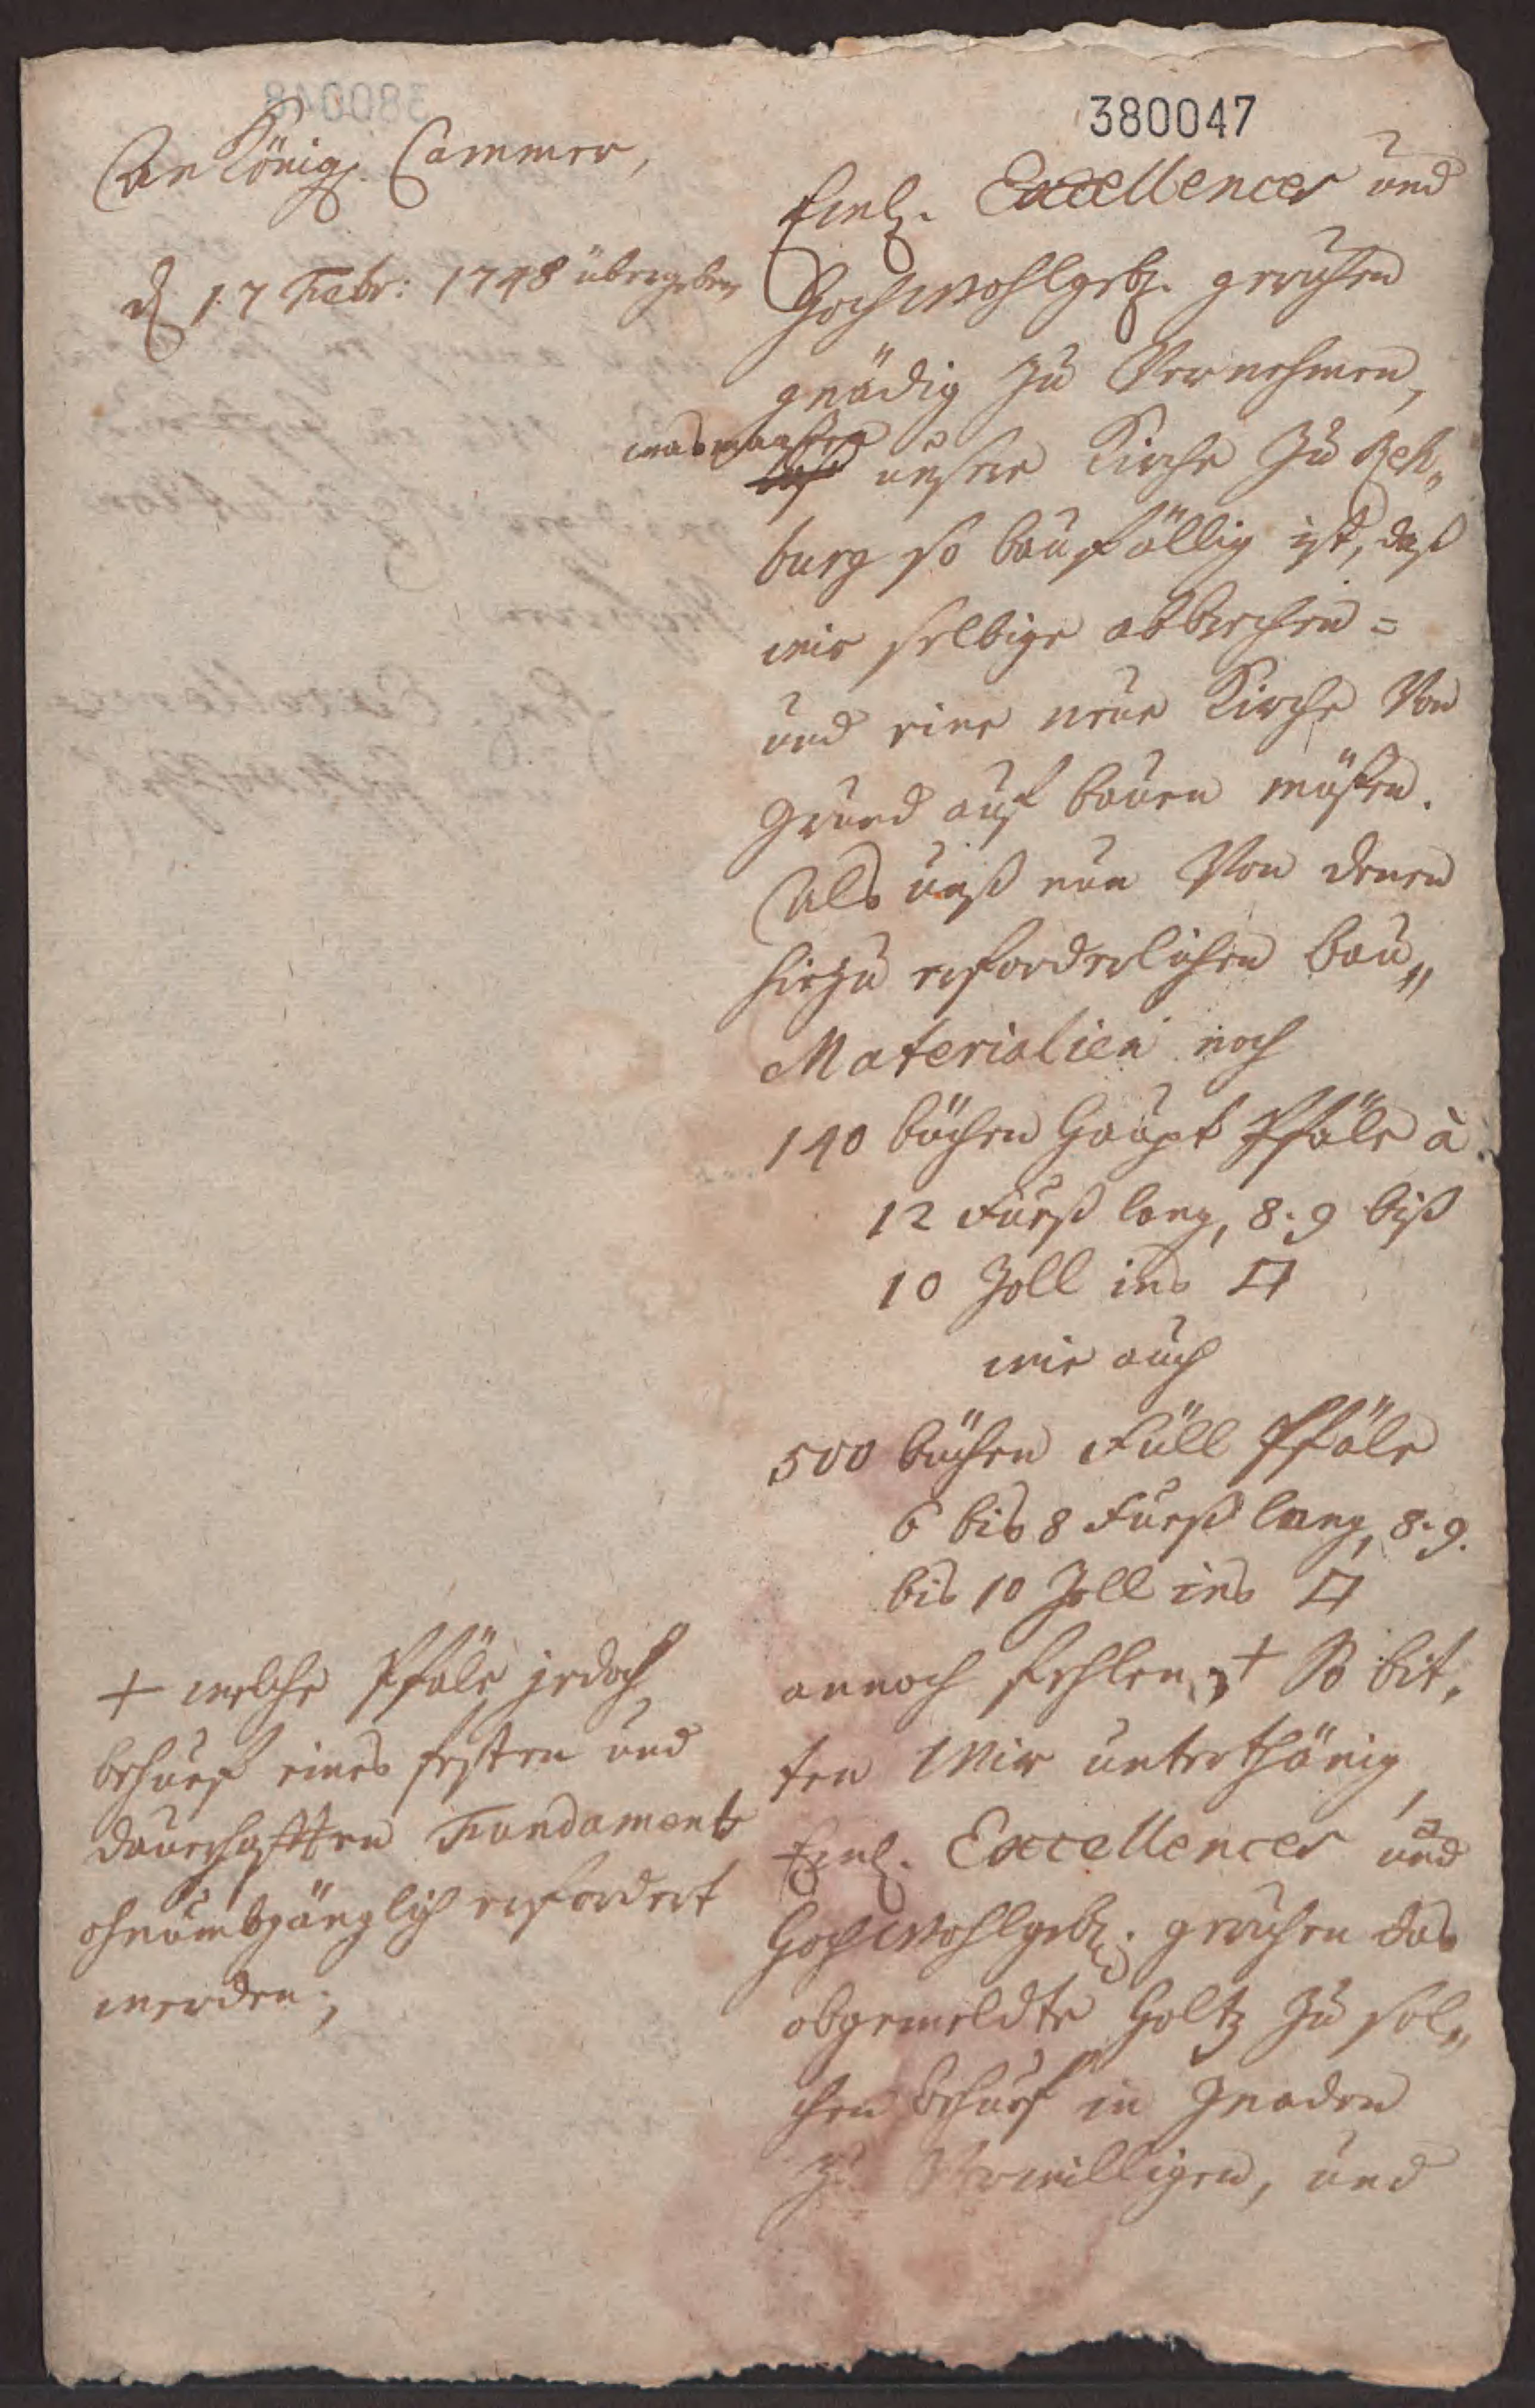 380047
An Königl. Cammer,
d 17 Febr: 1748 übergeben
Ewl. Excellences und
Hochwohlgeb. geruhen
gnädig zu Vernehmen,
wasmaaßen
daß unsere Kirche zu Reh„
burg so baufällig ist, daß
wir selbige abbrechen =
und eine neue Kirche Von
Grund auf bauen müßen.
Als unß nun Von denen
hiezu erforderlichen bau„
Materialien noch
140 büchen Haupt Pfäle à
12 Fueß lang, 8. 9 biß
10 Zoll ins □
wie auch
500 büchen Füll Pfäle
6 bis 8 Fueß lang, 8. 9.
bis 10 Zoll ins □
annoch fehlen, + So bit„
ten Wir unterthänig,
Ewl. Excellences und
Hochwohlgeb. geruhen das
obgemeldte Holtz zu sol„
chen Behuef in Gnaden
zu Verwilligen, und
+ welche Pfäle jedoch
behuef eines festen und
dauerhafften Fundaments
ohnumbgänglich erfordert
werden;